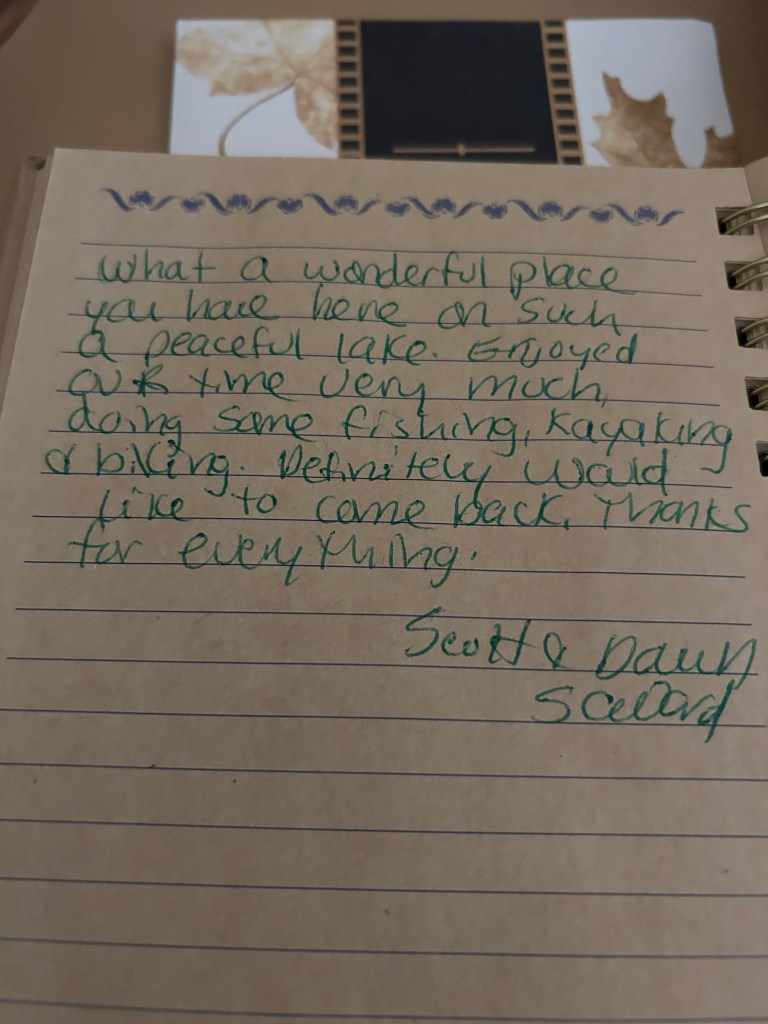 What a wonderful place
you have here on such
a peaceful lake. Enjoyed
our time very much,
doing some fishing, kayaking
& biking. Definitely would
like to come back. Thanks
for everything.
Scott & Dawn